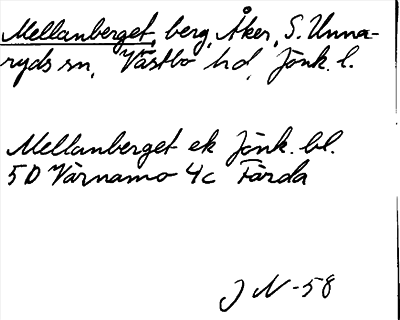 Mellanberget, berg, Åker, S. Unna-
ryds sn, Västbo hd, Jönk. l.
Mellanberget ek Jönk. bl.
5D Värnamo 4c Färda
J N -58